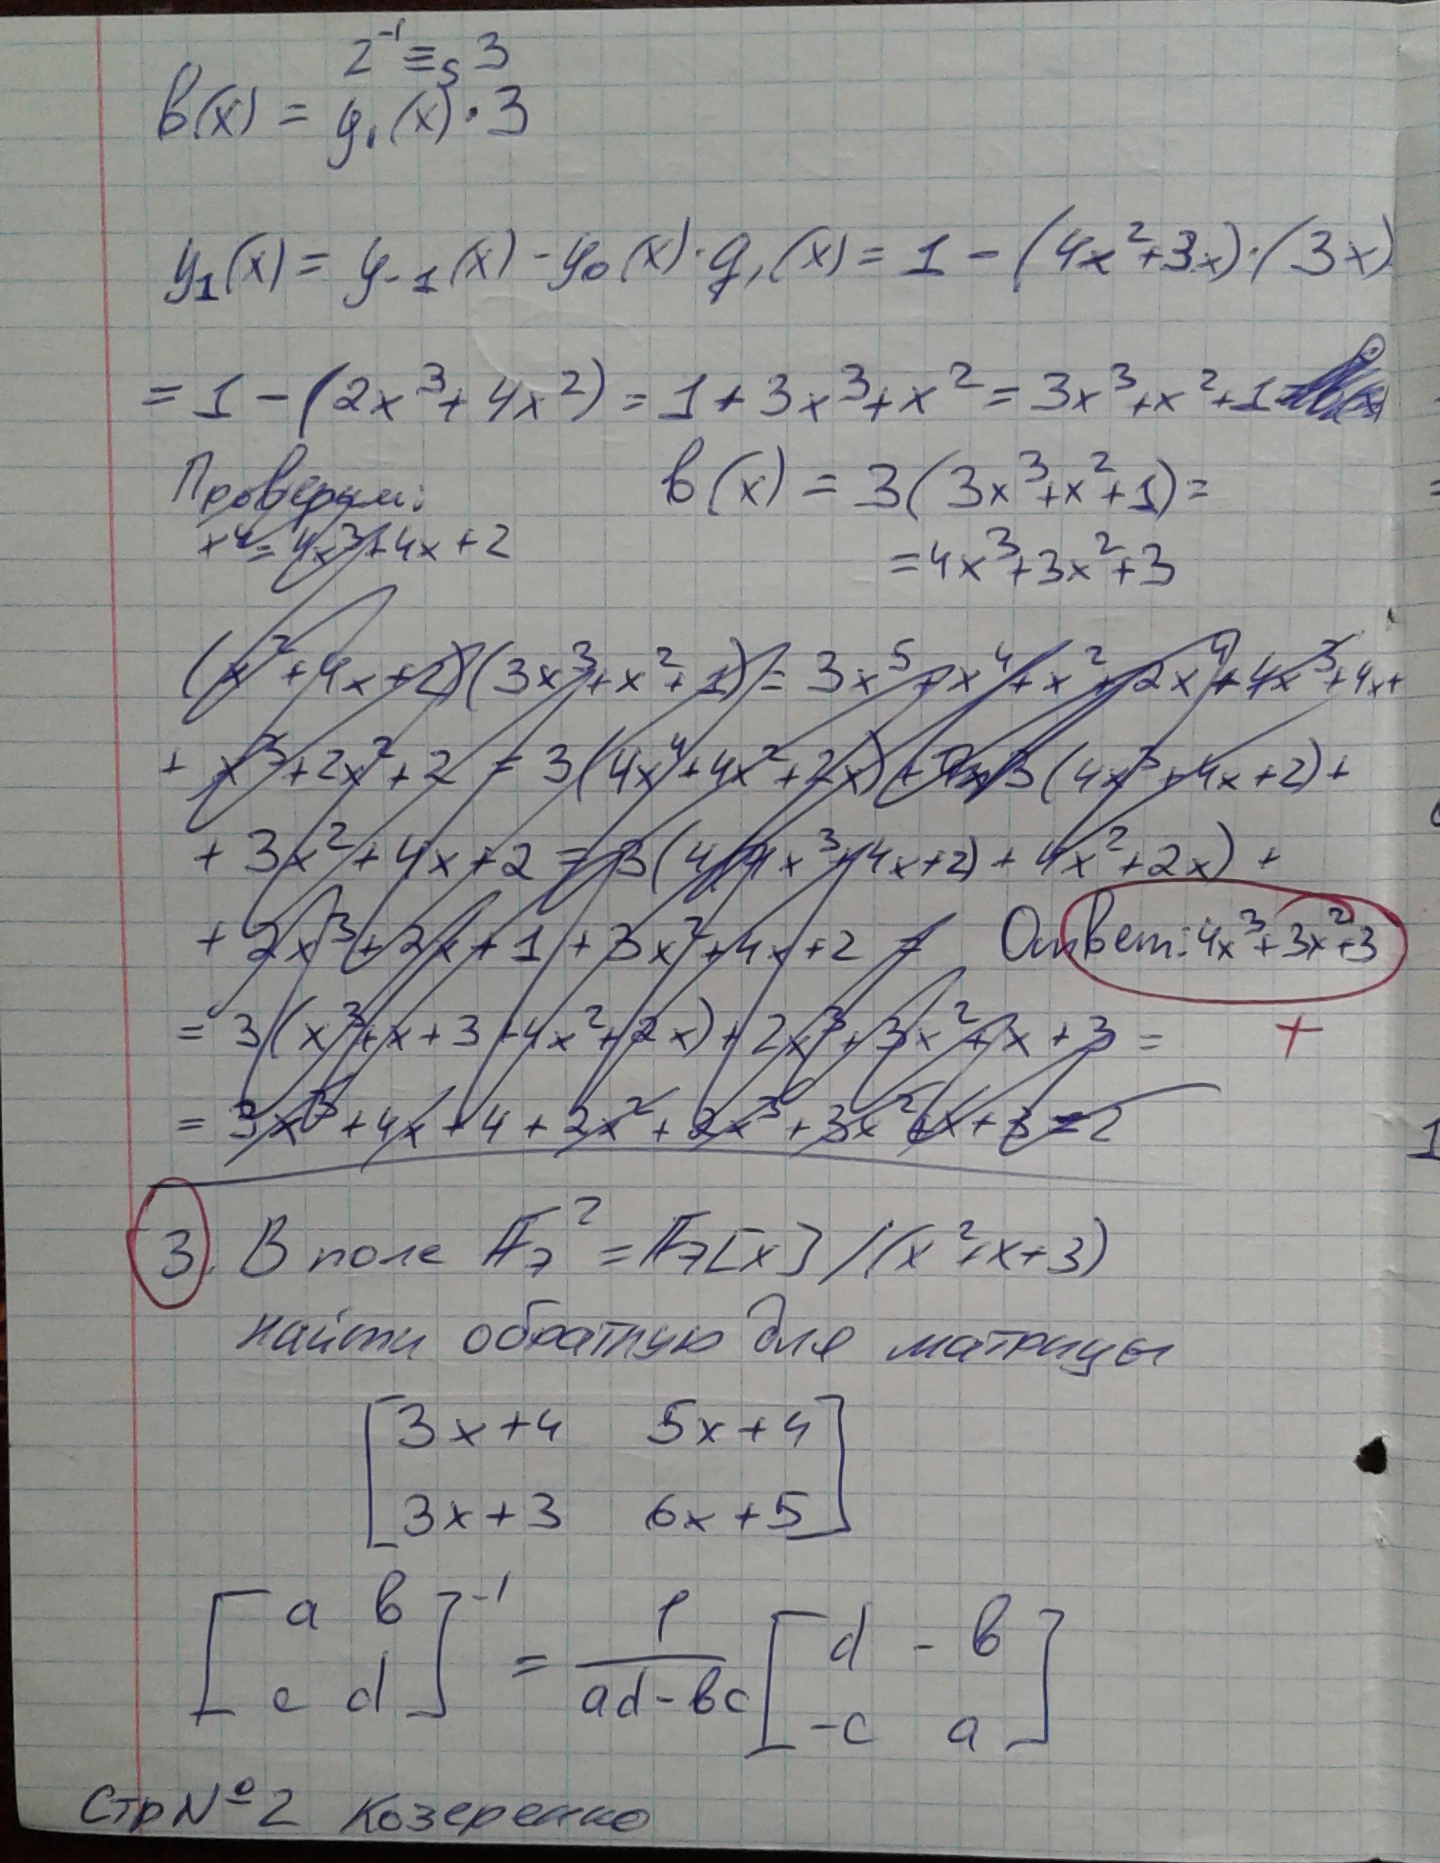 2⁻¹ ≡₅ 3
b(x) = y₁(x)·3
y₁(x) = y₋₁(x) - y₀(x)·q₁(x) = 1 - (4x²+3x)·(3x)
= 1 - (2x³+4x²) = 1 + 3x³+x² = 3x³+x²+1
Проверим:
b(x) = 3(3x³+x²+1) =
x⁴ = 4x³+4x+2
= 4x³+3x²+3
(x²+4x+2)(3x³+x²+1) = 3x⁵+x⁴+x²+2x⁴+4x³+4x+
+ x³+2x²+2 = 3(4x⁴+4x²+2x) + 3(4x³+4x+2)+
+ 3x²+4x+2 = 3(4(4x³+4x+2) + 4x²+2x) +
+ 2x³+2x+1 + 3x²+4x+2 =
Ответ: 4x³+3x²+3
= 3(x³+x+3+4x²+2x)+2x³+3x²+x+3 =
+
= 3x³+4x+4+2x²+2x³+3x²+x+3=2
3. В поле F₇² = F₇[x]/(x²+x+3)
найти обратную для матрицы
[3x+4 5x+4
3x+3 6x+5]
[a b
c d]⁻¹ = 1/(ad-bc) [d -b
-c a]
Стр №2 Козеренко